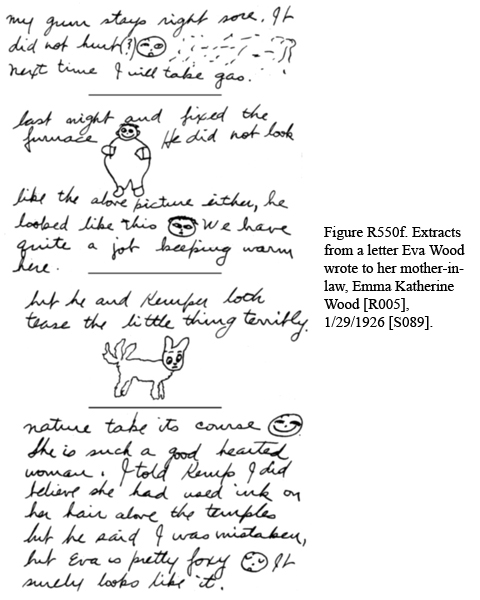 my gum stays right sore. It
did not hurt(?)
next time I will take gas.
last night and fixed the
furnace He did not look
like the above picture either, he
looked like this We have
quite a job keeping warm
here.
but he and Kemper both
tease the little thing terribly.
nature take its course
She is such a good hearted
woman. I told Kemp I did
believe she had used ink on
her hair above the temples
but he said I was mistaken,
but Eva is pretty foxy It
surely looks like it.
Figure R550f. Extracts
from a letter Eva Wood
wrote to her mother-in-
law, Emma Katherine
Wood [R005],
1/29/1926 [S089].